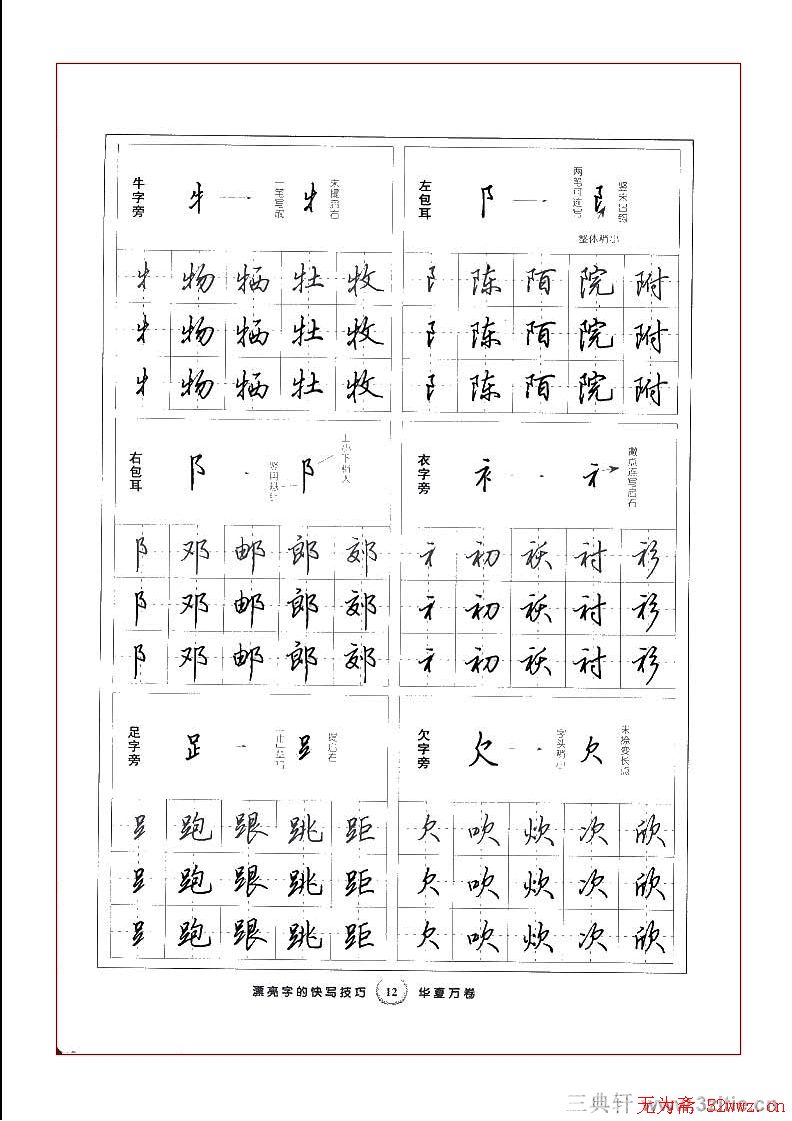 牛字旁
末提启右
左包耳
两笔可连写
竖末出钩
整体稍小
牜 物 牺 牡 牧
牜 物 牺 牡 牧
牜 物 牺 牡 牧
阝 陈 陌 院 附
阝 陈 陌 院 附
阝 陈 陌 院 附
右包耳
上小下稍大
衣字旁
撇点连写启右
阝 邓 邮 郎 郊
阝 邓 邮 郎 郊
阝 邓 邮 郎 郊
衤 初 袄 衬 衫
衤 初 袄 衬 衫
衤 初 袄 衬 衫
足字旁
提启右
欠字旁
欠
字头稍小
欠
末捺变长点
⻊ 跑 跟 跳 距
⻊ 跑 跟 跳 距
⻊ 跑 跟 跳 距
欠 吹 炊 次 欣
欠 吹 炊 次 欣
欠 吹 炊 次 欣
漂亮字的快写技巧 12 华夏万卷
三典轩
无为斋 52wwz.cn